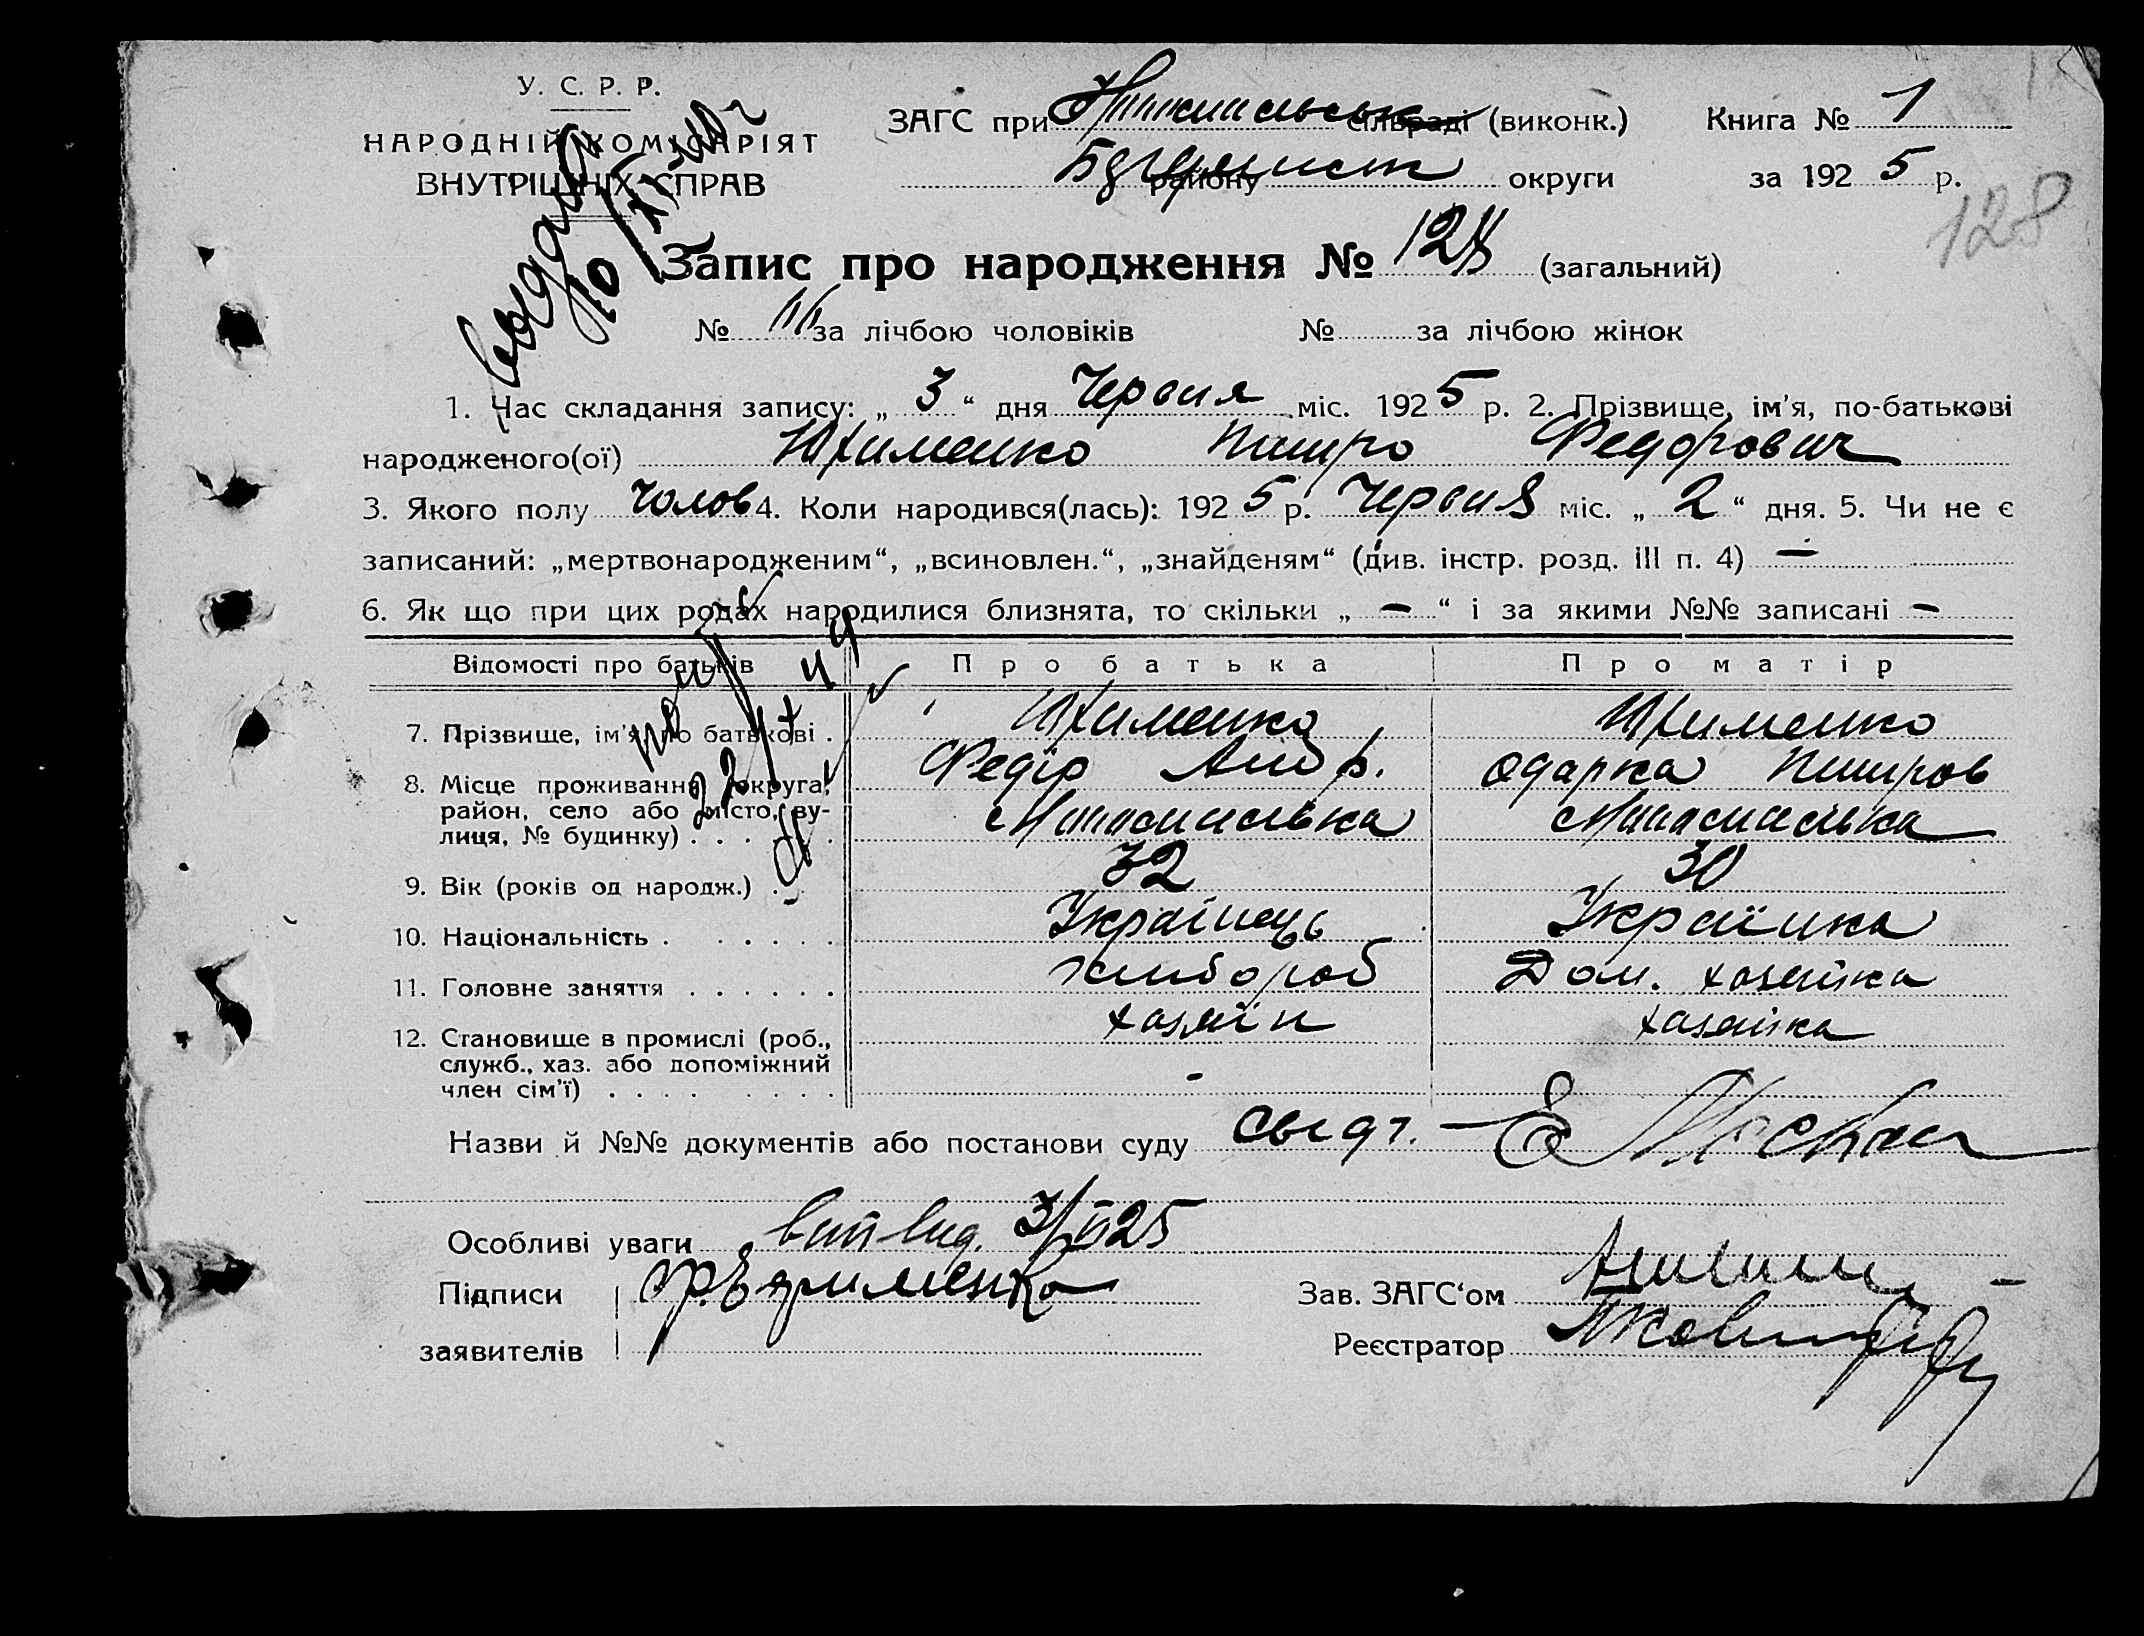 У. С. Р. Р.
НАРОДНІЙ КОМІСАРІЯТ
ВНУТРІШНІХ СПРАВ
ЗАГС при сільраді (виконк.) Книга № 1
району округи за 1925 р.
128
Запис про народження № 128 (загальний)
№ за лічбою чоловіків № за лічбою жінок
1. Час складання запису: „3“ дня Червня міс. 1925 р. 2. Прізвище, ім'я, по-батькові
народженого(ої) Юхименко Петро Федорович
3. Якого полу чолов 4. Коли народився(лась): 1925 р. Червня міс. „2“ дня. 5. Чи не є
записаний: „мертвонародженим“, „всиновлен.“, „знайденям“ (див. інстр. розд. III п. 4) —
6. Як що при цих родах народилися близнята, то скільки „—“ і за якими №№ записані —
Відомості про батьків Про батька Про матір
7. Прізвище, ім'я, по батькові . Юхименко Юхименко
Федір Андр. Одарка Петров
8. Місце проживання (округа,
район, село або місто, ву-
лиця, № будинку) . . . .
9. Вік (років од народж.) . . 32 30
10. Національність . . . . . . Українець Українка
11. Головне заняття . . . . . . хлібороб Дом. хазяйка
12. Становище в промислі (роб., хазяїн хазяйка
служб., хаз. або допоміжний
член сім'ї) . . . . . . . . -
Назви й №№ документів або постанови суду
Особливі уваги 3/VI 25
Підписи Єфименко Зав. ЗАГС'ом
заявителів Реєстратор